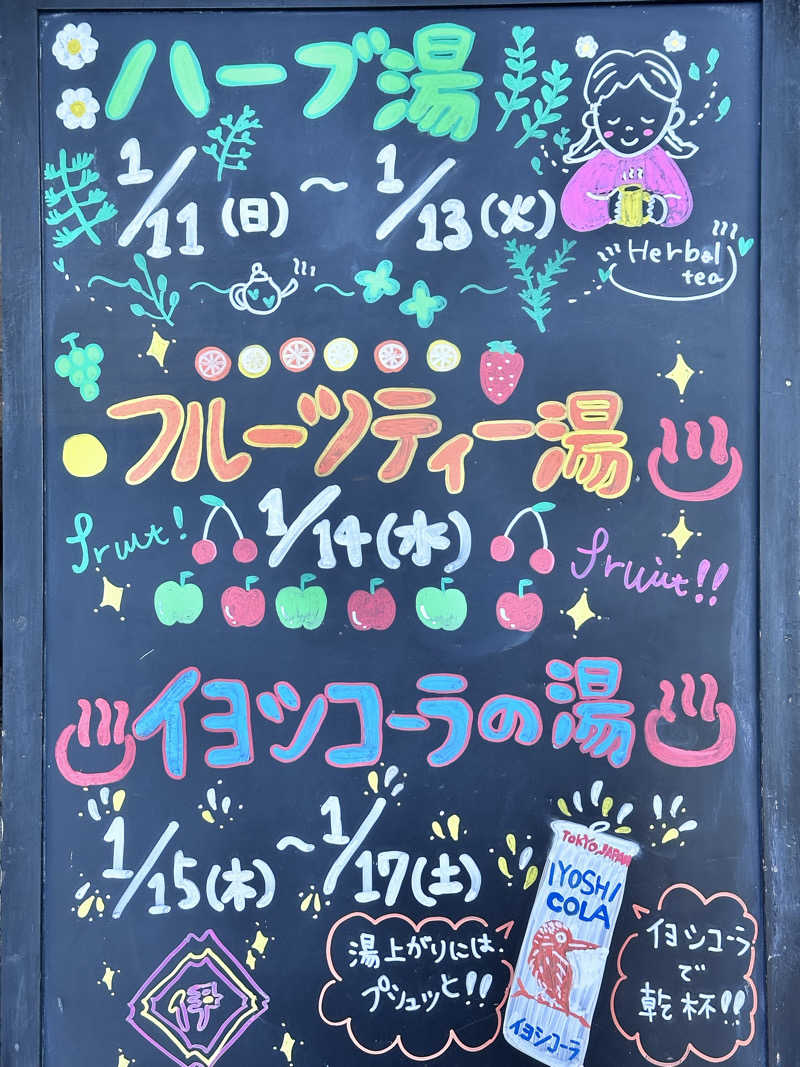 ハーブ湯
1/11(日)～1/13(火)
Herbal
tea
フルーツティー湯
1/14(水)
fruit!
fruit!!
イヨシコーラの湯
1/15(木)～1/17(土)
TOKYO, JAPAN
IYOSHI
COLA
イヨシコーラ
湯上がりには、
プシュッと!!
イヨシコーラ
で
乾杯!!
伊